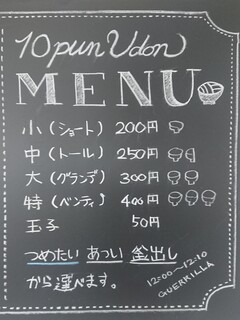 10pun Udon
MENU
小(ショート) 200円
中(トール) 250円
大(グランデ) 300円
特(ベンティ) 400円
玉子 50円
つめたい あつい 釜出し
から選べます。
12:00〜12:10
GUERRILLA